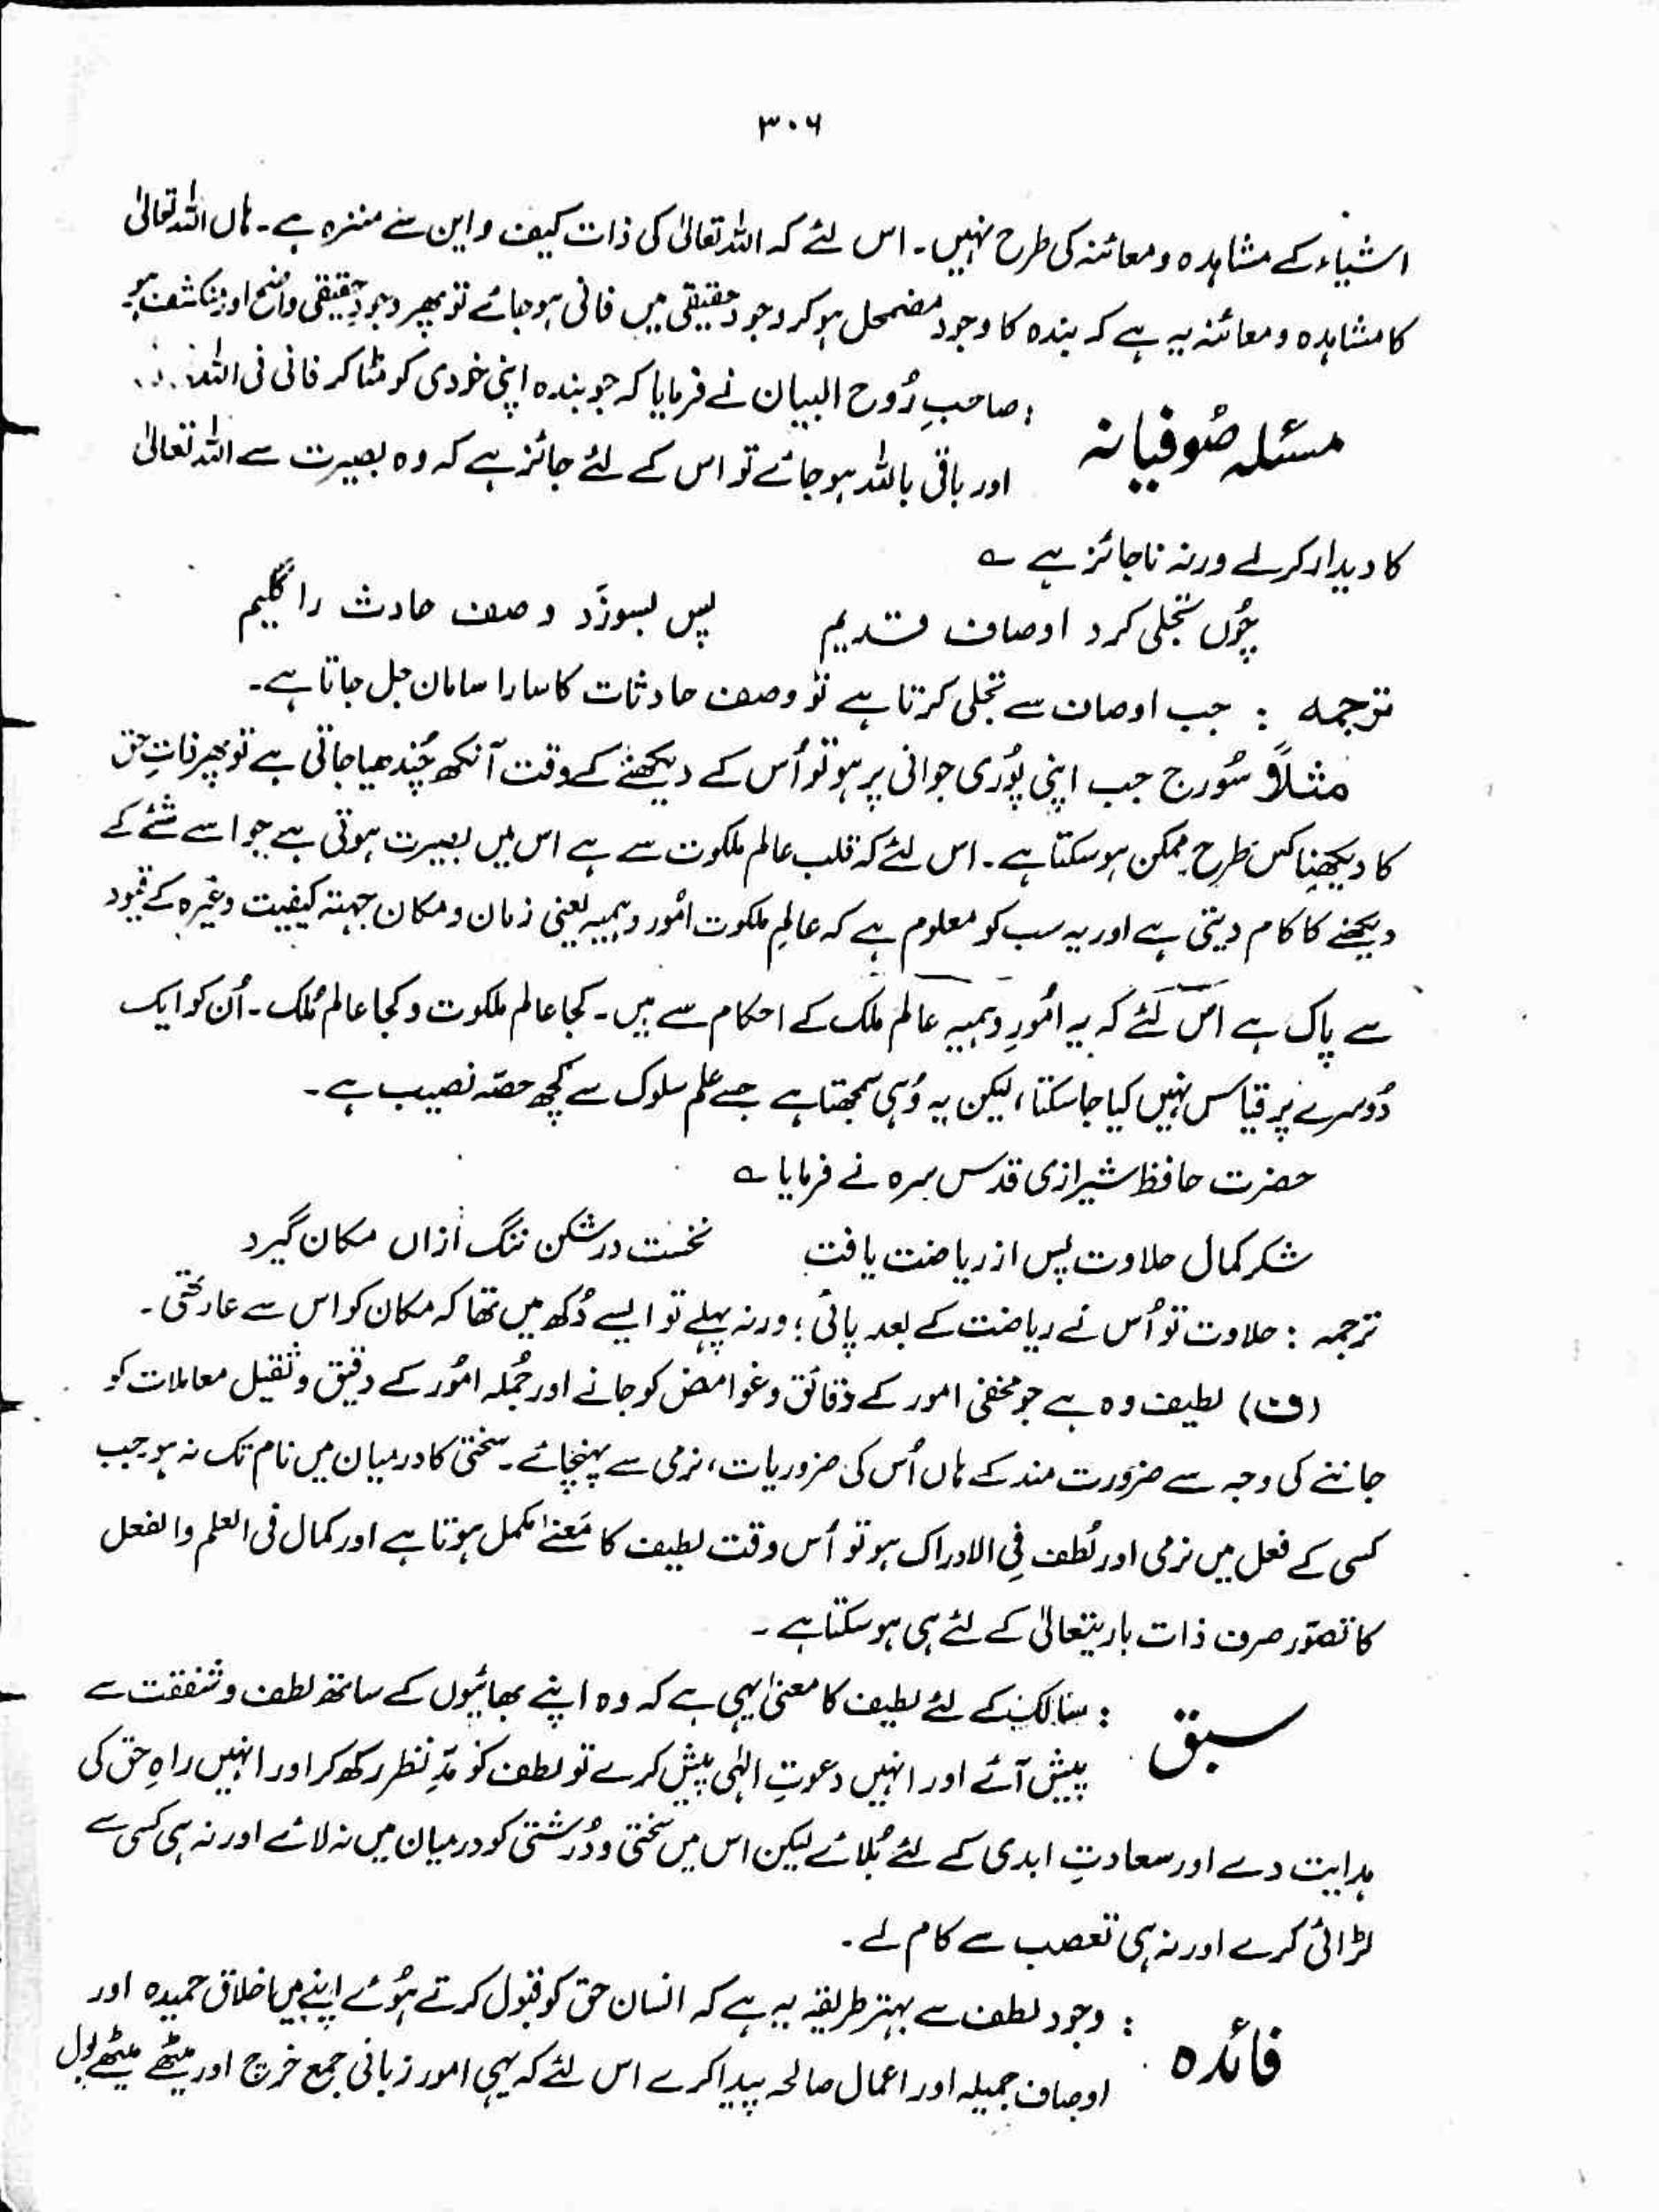 ۳۰۶
اشیاء کے مشاہدہ و معائنہ کی طرح نہیں۔ اس لئے کہ اللہ تعالیٰ کی ذات کیف و این سے منزہ ہے۔ ہاں اللہ تعالیٰ
کا مشاہدہ و معائنہ یہ ہے کہ بندہ کا وجود مضمحل ہو کر وجود حقیقی میں فانی ہو جائے تو پھر وجودِ حقیقی واضح اور منکشف ہو۔
مسئلہ صُوفیانہ : صاحبِ رُوح البیان نے فرمایا کہ جو بندہ اپنی خودی کو مٹا کر فانی فی اللہ
اور باقی باللہ ہو جائے تو اس کے لئے جائز ہے کہ وہ بصیرت سے اللہ تعالیٰ
کا دیدار کرلے ورنہ ناجائز ہے ؎
چُوں تجلی کرد اوصاف قدیم پس بسوزَد وصف حادث را گلیم
ترجمہ : جب اوصاف سے تجلی کرتا ہے تو وصف حادثات کا سارا سامان جل جاتا ہے۔
مثلاً سُورج جب اپنی پُوری جوانی پر ہو تو اُس کے دیکھنے کے وقت آنکھ چُندھیا جاتی ہے تو پھر ذاتِ حق
کا دیکھنا کس طرح ممکن ہو سکتا ہے۔ اس لئے کہ قلب عالم ملکوت سے ہے اس میں بصیرت ہوتی ہے جو اسے شے کے
دیکھنے کا کام دیتی ہے اور یہ سب کو معلوم ہے کہ عالمِ ملکوت امُور وہمیہ یعنی زمان و مکان جہتہ کیفیت وغیرہ کے قیود
سے پاک ہے اس لئے کہ یہ اُمورِ وہمیہ عالم ملک کے احکام سے ہیں۔ کجا عالم ملکوت و کجا عالم مُلک۔ اُن کو ایک
دُوسرے پر قیاس نہیں کیا جا سکتا، لیکن یہ وُہی سمجھتا ہے جسے علم سلوک سے کچھ حصّہ نصیب ہے۔
حضرت حافظ شیرازی قدس سرہ نے فرمایا ؎
شکر کمال حلاوت پس از ریاضت یافت نخست در شکن تنگ ازاں مکان گیرد
ترجمہ : حلاوت تو اُس نے ریاضت کے بعد پائی؛ ورنہ پہلے تو ایسے دُکھ میں تھا کہ مکان کو اس سے عار تھی۔
(ف) لطیف وہ ہے جو مخفی امور کے دقائق و غوامض کو جانے اور جُملہ امُور کے دقیق و ثقیل معاملات کو
جاننے کی وجہ سے ضرورت مند کے ہاں اُس کی ضروریات، نرمی سے پہنچائے۔ سختی کا درمیان میں نام تک نہ ہو جب
کسی کے فعل میں نرمی اور لُطف فِی الادراک ہو تو اُس وقت لطیف کا مَعنےٰ مکمل ہوتا ہے اور کمال فی العلم والفعل
کا تصوّر صرف ذات باریتعالیٰ کے لئے ہی ہو سکتا ہے۔
سبق : سالک کے لئے لطیف کا معنیٰ یہی ہے کہ وہ اپنے بھائیوں کے ساتھ لطف و شفقت سے
پیش آئے اور انہیں دعوتِ الٰہی پیش کرے تو لطف کو مدِّ نظر رکھ کر اور انہیں راہِ حق کی
ہدایت دے اور سعادتِ ابدی کے لئے بُلائے لیکن اس میں سختی و دُرشتی کو درمیان میں نہ لائے اور نہ ہی کسی سے
لڑائی کرے اور نہ ہی تعصب سے کام لے۔
فائدہ : وجود لطف سے بہتر طریقہ یہ ہے کہ انسان حق کو قبول کرتے ہُوئے اپنے میں اخلاق حمیدہ اور
اوصاف جمیلہ اور اعمال صالحہ پیدا کرے اس لئے کہ یہی امور زبانی جمع خرچ اور میٹھے میٹھے بول